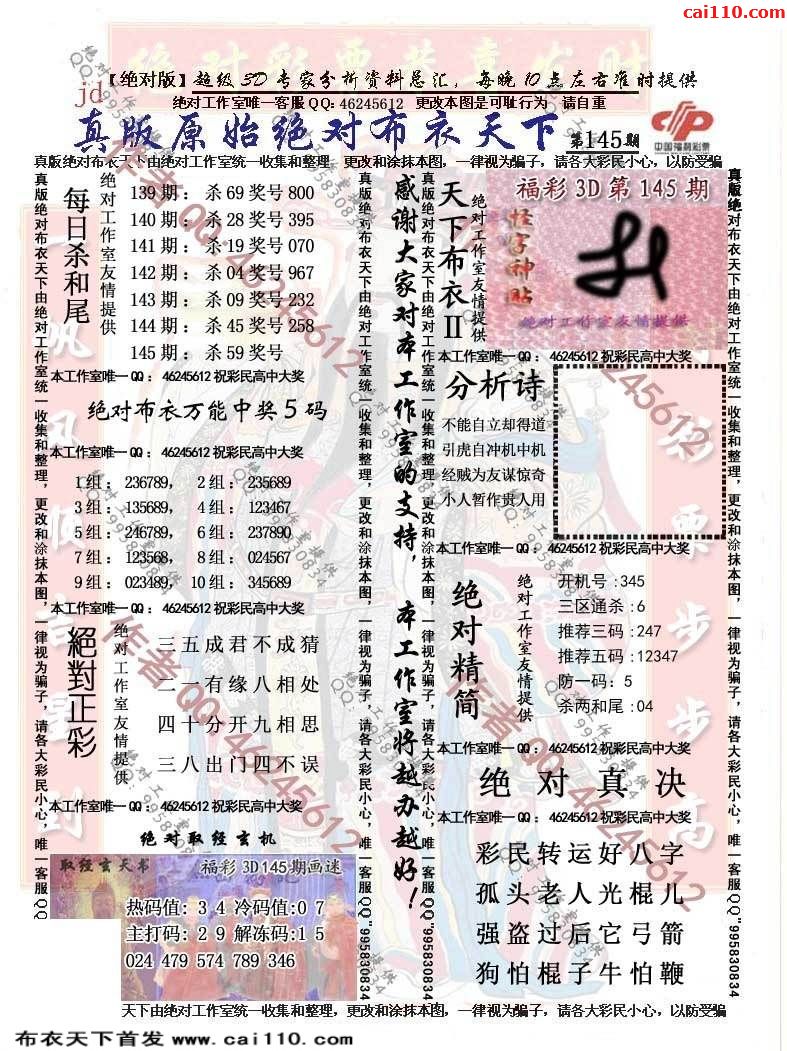 cai110.com
【绝对版】超级3D专家分析资料总汇，每晚10点左右准时提供
jd
绝对工作室唯一客服QQ: 46245612 更改本图是可耻行为 请自重
真版原始绝对布衣天下 第145期
中国福利彩票
真版绝对布衣天下由绝对工作室统一收集和整理，更改和涂抹本图，一律视为骗子，请各大彩民小心，以防受骗
真版绝对布衣天下由绝对工作室统一收集和整理，更改和涂抹本图，一律视为骗子，请各大彩民小心，唯一客服QQ
每日杀和尾
绝对工作室友情提供
139期：杀69奖号800
140期：杀28奖号395
141期：杀19奖号070
142期：杀04奖号967
143期：杀09奖号232
144期：杀45奖号258
145期：杀59奖号
本工作室唯一QQ：46245612祝彩民高中大奖
绝对布衣万能中奖5码
本工作室唯一QQ：46245612祝彩民高中大奖
1组：236789， 2组：235689
3组：135689， 4组：123467
5组：246789， 6组：237890
7组：123568， 8组：024567
9组：023489， 10组：345689
本工作室唯一QQ：46245612祝彩民高中大奖
絕對正彩
绝对工作室友情提供
三五成君不成猜
二一有缘八相处
四十分开九相思
三八出门四不误
本工作室唯一QQ：46245612祝彩民高中大奖
绝对取经玄机
取经玄天书 福彩3D145期画迷
热码值: 3 4 冷码值:0 7
主打码: 2 9 解冻码:1 5
024 479 574 789 346
真版绝对布衣天下由绝对工作室统一收集和整理，更改和涂抹本图，一律视为骗子，请各大彩民小心，唯一客服QQ"995830834
感谢大家对本工作室的支持，本工作室将越办越好！
真版绝对布衣天下由绝对工作室统一收集和整理，更改和涂抹本图，一律视为骗子，请各大彩民小心，唯一客服QQ"995830834
天下布衣II
绝对工作室友情提供
福彩3D第145期
怪字神贴
绝对工作室友情提供
本工作室唯一QQ：46245612祝彩民高中大奖
分析诗
不能自立却得道
引虎自冲机中机
经贼为友谋惊奇
小人暂作贵人用
本工作室唯一QQ：46245612祝彩民高中大奖
绝对精简
绝对工作室友情提供
开机号:345
三区通杀:6
推荐三码:247
推荐五码:12347
防一码: 5
杀两和尾:04
本工作室唯一QQ：46245612祝彩民高中大奖
绝对真决
本工作室唯一QQ：46245612祝彩民高中大奖
彩民转运好八字
孤头老人光棍儿
强盗过后它弓箭
狗怕棍子牛怕鞭
真版绝对布衣天下由绝对工作室统一收集和整理，更改和涂抹本图，一律视为骗子，请各大彩民小心，唯一客服QQ"995830834
天下由绝对工作室统一收集和整理，更改和涂抹本图，一律视为骗子，请各大彩民小心，以防受骗
布衣天下首发 www.cai110.com